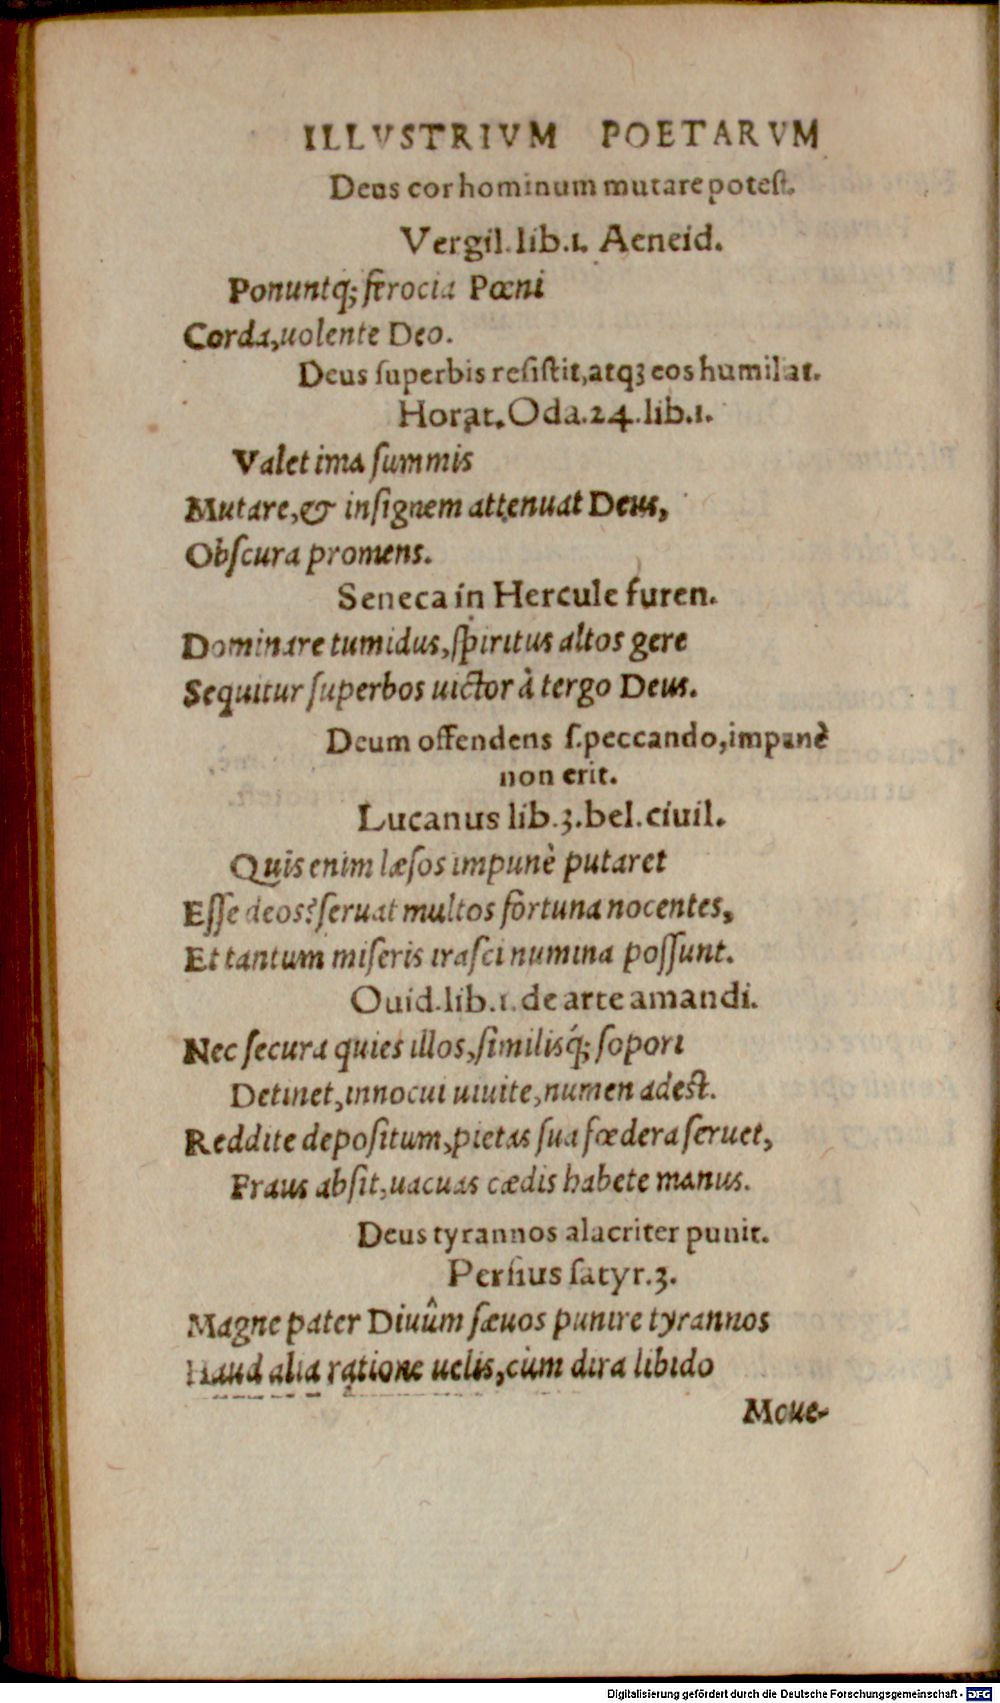 ILLVSTRIVM POETARVM
Deus cor hominum mutare potest.
Vergil. lib.1. Aeneid.
Ponuntq́; ferocia Pœni
Corda, uolente Deo.
Deus superbis resistit, atqꝫ eos humiliat.
Horat. Oda. 24. lib.1.
Valet ima summis
Mutare, & insignem attenuat Deus,
Obscura promens.
Seneca in Hercule furen.
Dominare tumidus, spiritus altos gere
Sequitur superbos uictor à tergo Deus.
Deum offendens s. peccando, impunè
non erit.
Lucanus lib.3. bel. ciuil.
Quis enim læsos impunè putaret
Esse deos? seruat multos fortuna nocentes,
Et tantum miseris irasci numina possunt.
Ouid. lib.1. de arte amandi.
Nec secura quies illos, similisq́; sopori
Detinet, innocui uiuite, numen adest.
Reddite depositum, pietas sua fœdera seruet,
Fraus absit, uacuas cædis habete manus.
Deus tyrannos alacriter punit.
Persius satyr.3.
Magne pater Diuûm sæuos punire tyrannos
Haud alia ratione uelis, cùm dira libido
Moue-
Digitalisierung gefördert durch die Deutsche Forschungsgemeinschaft - DFG